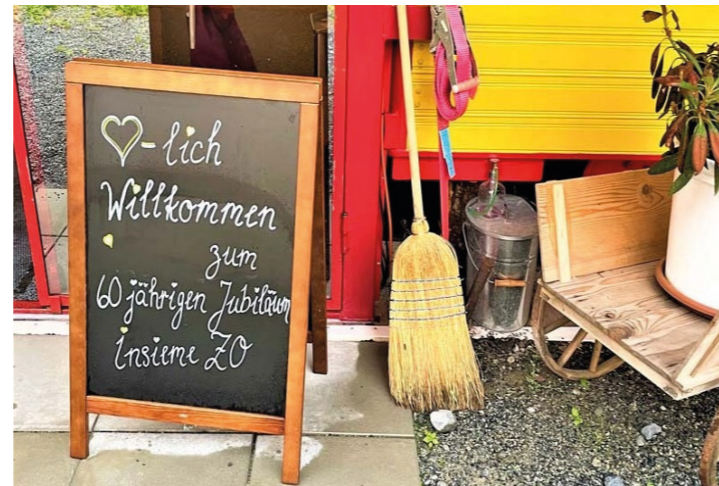 ♡-lich
Willkommen
zum
60 jährigen Jubiläum
insieme ZO